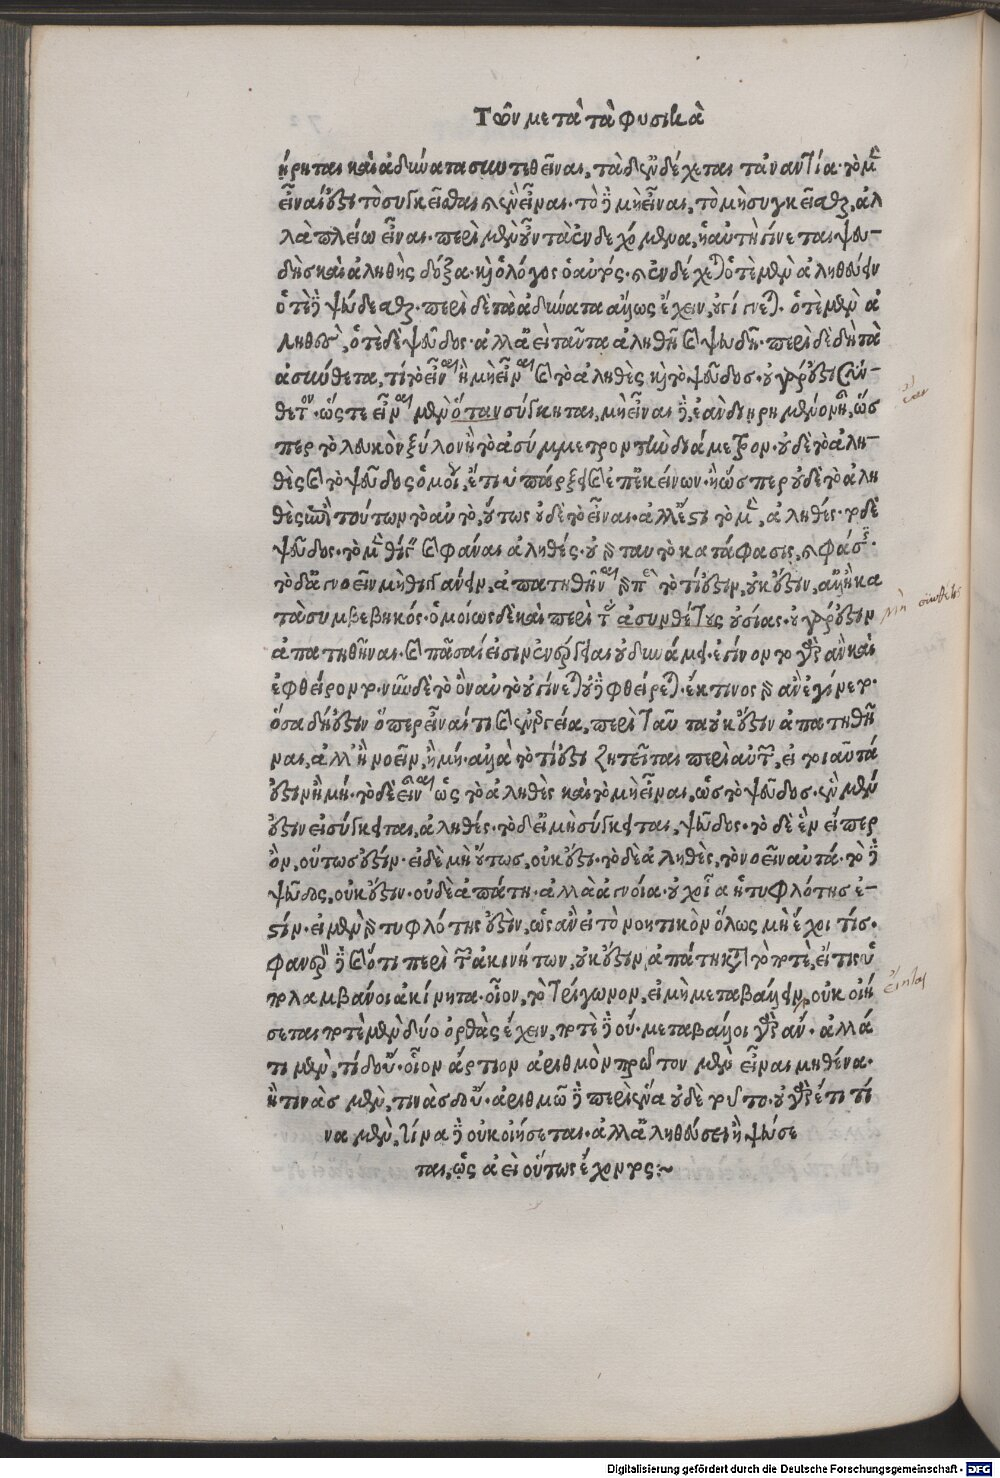 Τῶν μετὰ τὰ φυσικὰ
ήρηται καὶ ἀδύνατα συντεθῆναι, τὰ δ' ἐνδέχεται τἀναντία· τὸ μὲν
εἶναί ἐστι τὸ συγκεῖσθαι καὶ ἓν εἶναι· τὸ δὲ μὴ εἶναι, τὸ μὴ συγκεῖσθαι, ἀλ
λὰ πλείω εἶναι· περὶ μὲν οὖν τὰ ἐνδεχόμενα, ἡ αὐτὴ γίνεται ψευ-
δὴς καὶ ἀληθὴς δόξα· καὶ ὁ λόγος ὁ αὐτός· καὶ ἐνδέχεται ὁτὲ μὲν ἀληθεύειν
ὁτὲ δὲ ψεύδεσθαι· περὶ δὲ τὰ ἀδύνατα ἄλλως ἔχειν, οὐ γίνεται. ὁτὲ μὲν ἀ
ληθὲς, ὁτὲ δὲ ψεῦδος· ἀλλ' ἀεὶ ταῦτα ἀληθῆ καὶ ψευδῆ· περὶ δὲ δὴ τὰ
ἀσύνθετα, τί τὸ εἶναι ἢ μὴ εἶναι καὶ τὸ ἀληθὲς καὶ τὸ ψεῦδος· οὐ γάρ ἐστι σύν-
θετον· ὥστε εἶναι μὲν ὅταν σύγκηται, μὴ εἶναι δὲ, ἐὰν διῃρημένον ᾖ, ὥσ
περ τὸ λευκὸν ξύλον ἢ τὸ ἀσύμμετρον τὴν διάμετρον· οὐδὲ τὸ ἀλη-
θὲς καὶ τὸ ψεῦδος ὁμοίως ἔτι ὑπάρξει καὶ ἐπ' ἐκείνων· ἢ ὥσπερ οὐδὲ τὸ ἀλη
θὲς ἐπὶ τούτων τὸ αὐτὸ, οὕτως οὐδὲ τὸ εἶναι· ἀλλ' ἔστι τὸ μὲν, ἀληθές· τὸ δὲ
ψεῦδος· τὸ μὲν θιγεῖν καὶ φάναι ἀληθές· οὐ γὰρ ταυτὸ κατάφασις, καὶ φάσις·
τὸ δ' ἀγνοεῖν μὴ θιγγάνειν, ἀπατηθῆναι γὰρ περὶ τὸ τί ἐστιν, οὐκ ἔστιν, ἀλλ' ἢ κα
τὰ συμβεβηκός· ὁμοίως δὲ καὶ περὶ τὰς ἀσυνθέτους οὐσίας· οὐ γάρ ἐστιν
ἀπατηθῆναι· καὶ πᾶσαί εἰσιν ἐνεργείαι οὐ δυνάμει· ἐγίνοντο γὰρ ἂν καὶ
ἐφθείροντο· νῦν δὲ τὸ ὂν αὐτὸ οὐ γίνεται οὐδὲ φθείρεται· ἔκ τινος γὰρ ἂν ἐγίνετο·
ὅσα δή ἐστιν ὅπερ εἶναί τι καὶ ἐνεργεία, περὶ ταῦτα οὐκ ἔστιν ἀπατηθῆ
ναι, ἀλλ' ἢ νοεῖν, ἢ μή· ἀλλὰ τὸ τί ἐστι ζητεῖται περὶ αὐτῶν, εἰ τοιαῦτά
ἐστιν ἢ μή· τὸ δὲ εἶναι ὡς τὸ ἀληθὲς καὶ τὸ μὴ εἶναι, ὡς τὸ ψεῦδος· ἓν μέν
ἐστιν εἰ σύγκειται, ἀληθές· τὸ δ' εἰ μὴ σύγκειται, ψεῦδος· τὸ δὲ ἓν εἴπερ
ὂν, οὕτως ἐστίν· εἰ δὲ μὴ οὕτως, οὐκ ἔστι· τὸ δὲ ἀληθὲς, τὸ νοεῖν αὐτά· τὸ δὲ
ψεῦδος, οὐκ ἔστιν· οὐδὲ ἀπάτη· ἀλλὰ ἀγνοία· οὐχ οἵα ἡ τυφλότης ἐ-
στίν· εἰ μὲν γὰρ τυφλότης ἐστὶν, ὡς ἂν εἰ τὸ νοητικὸν ὅλως μὴ ἔχοι τίς·
φανερὸν δὲ καὶ ὅτι περὶ τῶν ἀκινήτων, οὐκ ἔστιν ἀπάτη κατὰ τὸ ποτὲ, εἴ τις ὑ
πολαμβάνοι ἀκίνητα· οἷον, τὸ τρίγωνον, εἰ μὴ μεταβάλλειν, οὐκ οἰή
σεται ποτὲ μὲν δύο ὀρθὰς ἔχειν, ποτὲ δὲ οὔ· μεταβάλλοι γὰρ ἄν· ἀλλά
τι μὲν, τὶ δ' οὔ· οἷον ἄρτιον ἀριθμὸν πρῶτον μὲν εἶναι μηθένα·
ἢ τινὰς μὲν, τινὰς δ' οὔ· ἀριθμῷ δὲ περὶ ἕνα οὐδὲ τοῦτο· οὐ γὰρ ἔτι τί
να μὲν, τίνα δὲ οὐκ οἰήσεται· ἀλλ' ἀληθεύσει ἢ ψεύσε
ται, ὡς ἀεὶ οὕτως ἔχοντος:~
Digitalisierung gefördert durch die Deutsche Forschungsgemeinschaft - DFG